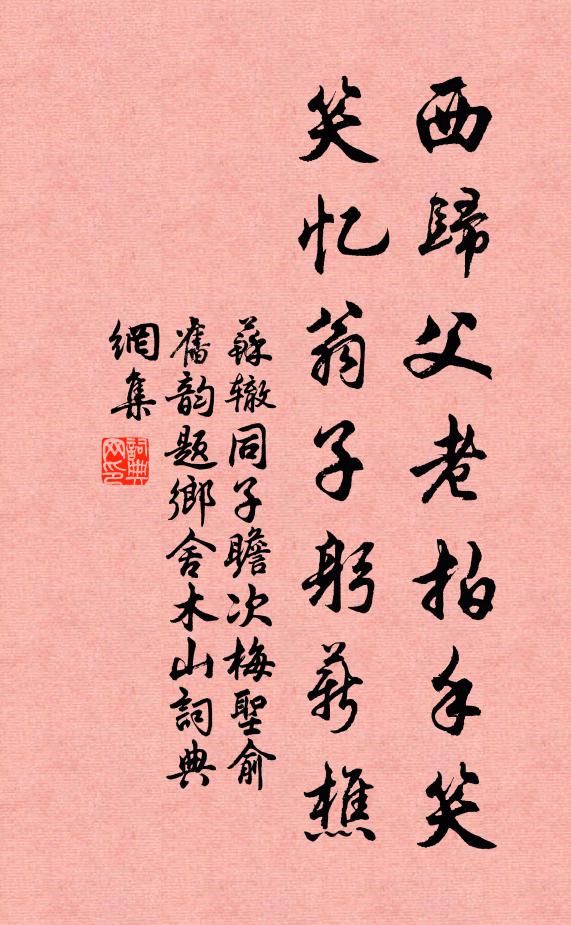 西歸父老拍手笑
笑忆翁子躬薪樵
蘇辙同子瞻次梅聖俞
舊韵題鄉舍木山詞典
網集
詞典网印